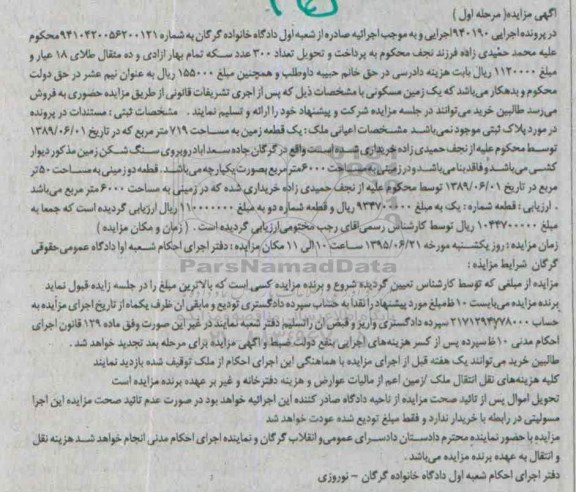 آگهی مزایده( مرحله اول )
در پرونده اجرایی ۹۴۰۱۹۰ اجرایی و به موجب اجرائیه صادره از شعبه اول دادگاه خانواده گرگان به شماره ۹۴۱۰۴۲۰۰۵۶۲۰۰۱۲۱ محکوم
علیه محمد حمیدی زاده فرزند نجف محکوم به پرداخت و تحویل تعداد ۳۰۰ عدد سکه تمام بهار ازادی و ده مثقال طلای ۱۸ عیار و
مبلغ ۱۱۲۰۰۰۰ ریال بابت هزینه دادرسی در حق خانم حبیبه داوطلب و همچنین مبلغ ۱۵۵۰۰۰ ریال به عنوان نیم عشر در حق دولت
محکوم و بدهکار می‌باشد که یک زمین مسکونی با مشخصات ذیل که پس از اجری تشریفات قانونی از طریق مزایده حضوری به فروش
می‌رسد طالبین خرید می‌توانند در جلسه مزایده شرکت و پیشنهاد خود را ارائه و تسلیم نمایند . مشخصات ثبتی : مستندات در پرونده
در مورد پلاک ثبتی موجود نمی‌باشد مشخصات اعیانی ملک : یک قطعه زمین به مساحت ۷۱۹ متر مربع که در تاریخ ۱۳۸۹/۰۶/۰۱
توسط محکوم علیه از نجف حمیدی زاده خریداری شده است واقع در گرگان جاده سعدآباد روبروی سنگ شکن زمین مذکور دیوار
کشی می‌باشد و فاقد بنا می‌باشد و در زمینی به مساحت ۶۰۰۰ متر مربع بصورت یکپارچه می‌باشد . قطعه دو زمینی به مساحت ۵۰ تر
مربع در تاریخ ۱۳۸۹/۰۶/۰۱ توسط محکوم علیه از نجف حمیدی زاده خریداری شده که در زمینی به مساحت ۶۰۰۰ متر مربع می‌باشد
. ارزیابی : قطعه شماره : یک به مبلغ ۹۳۴۷۰۰۰۰۰ ریال و قطعه شماره دو به مبلغ ۱۱۰۰۰۰۰۰۰ ریال ارزیابی گردیده است که جمعا به
مبلغ ۱۰۴۴۷۰۰۰۰۰ ریال توسط کارشناس رسمی اقای رجب مختومی ارزیابی گردیده است . ( زمان و مکان مزایده )
زمان مزایده : روز یکشنبه مورخه ۱۳۹۵/۰۶/۲۱ ساعت ۱۰ الی ۱۱ مکان مزایده : دفتر اجرای احکام شعبه اول دادگاه عمومی حقوقی
گرگان شرایط مزایده :
ParsNamadData
مزایده از مبلغی که توسط کارشناس تعیین گردیده شروع و برنده مزایده کسی است که بالاترین مبلغ را در جلسه زایده قبول نماید
برنده مزایده می‌بایست ۱۰٪ مبلغ مورد پیشنهاد را نقدا به حساب سپرده دادگستری تودیع و مابقی ان ظرف یکماه از تاریخ اجرای مزایده به
حساب ۲۱۷۱۲۹۴۷۷۸۰۰۰ سپرده دادگستری واریز و قبض ان را تسلیم دفتر شعبه نمایند در غیر این صورت وفق ماده ۱۲۹ قانون اجرای
احکام مدنی ۱۰٪ سپرده پس از کسر هزینه‌های اجرایی بنفع دولت ضبط و اگهی مزایده برای مرحله بعد تجدید خواهد شد .
طالبین خرید می‌توانند یک هفته قبل از اجرای مزایده با هماهنگی این اجرای احکام از ملک توقیف شده بازدید نمایند
کلیه هزینه‌های نقل انتقال ملک /زمین اعم از مالیات عوارض و هزینه دفترخانه و غیر بر عهده برنده مزایده است
تحویل اموال پس از تائید صحت مزایده از ناحیه دادگاه صادر کننده این اجرائیه خواهد بود در صورت عدم تائید صحت مزایده این اجرا
مسولیتی در رابطه با خریدار ندارد و فقط مبلغ تودیع شده عودت خواهد شد
مزایده با حضور نماینده محترم دادستان دادسرای عمومی و انقلاب گرگان و نماینده اجرای احکام مدنی انجام خواهد شد هزینه نقل
و انتقال به عهده برنده مزایده می‌باشد .
دفتر اجرای احکام شعبه اول دادگاه خانواده گرگان – نوروزی